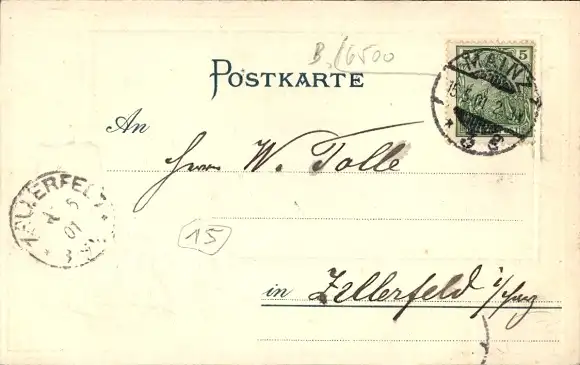 B. 16500
5
POSTKARTE
MAINZ
15.4.01. 2-3N
* 3 *
An
Herrn W. Tolle
ZELLERFELD
5
01
* 3
15
in Zellerfeld i/Harz